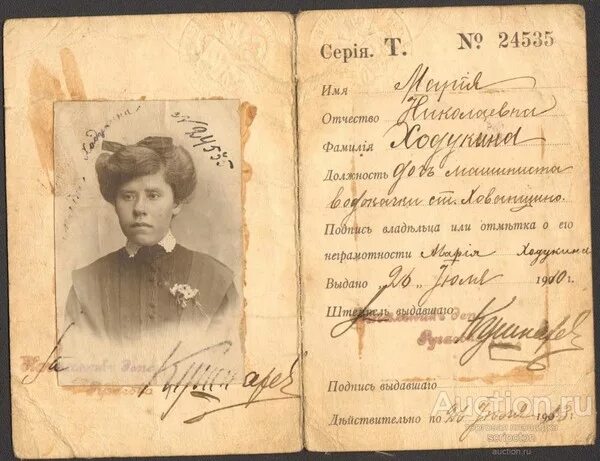 Ходукина
№ 24535
Серія. Т. № 24535
Имя Марія
Отчество Николаевна
Фамилія Ходукина
Должность дочь машиниста
водокачки ст. Ховрино.
Подпись владѣльца или отмѣтка о его
неграмотности Марія Ходукина
Выдано „26" Іюля 1910г.
Штемпель выдавшаго
Подпись выдавшаго
Дѣйствительно по 26 Іюля 1913г.
Auction.ru
торговая площадка
auction.ru